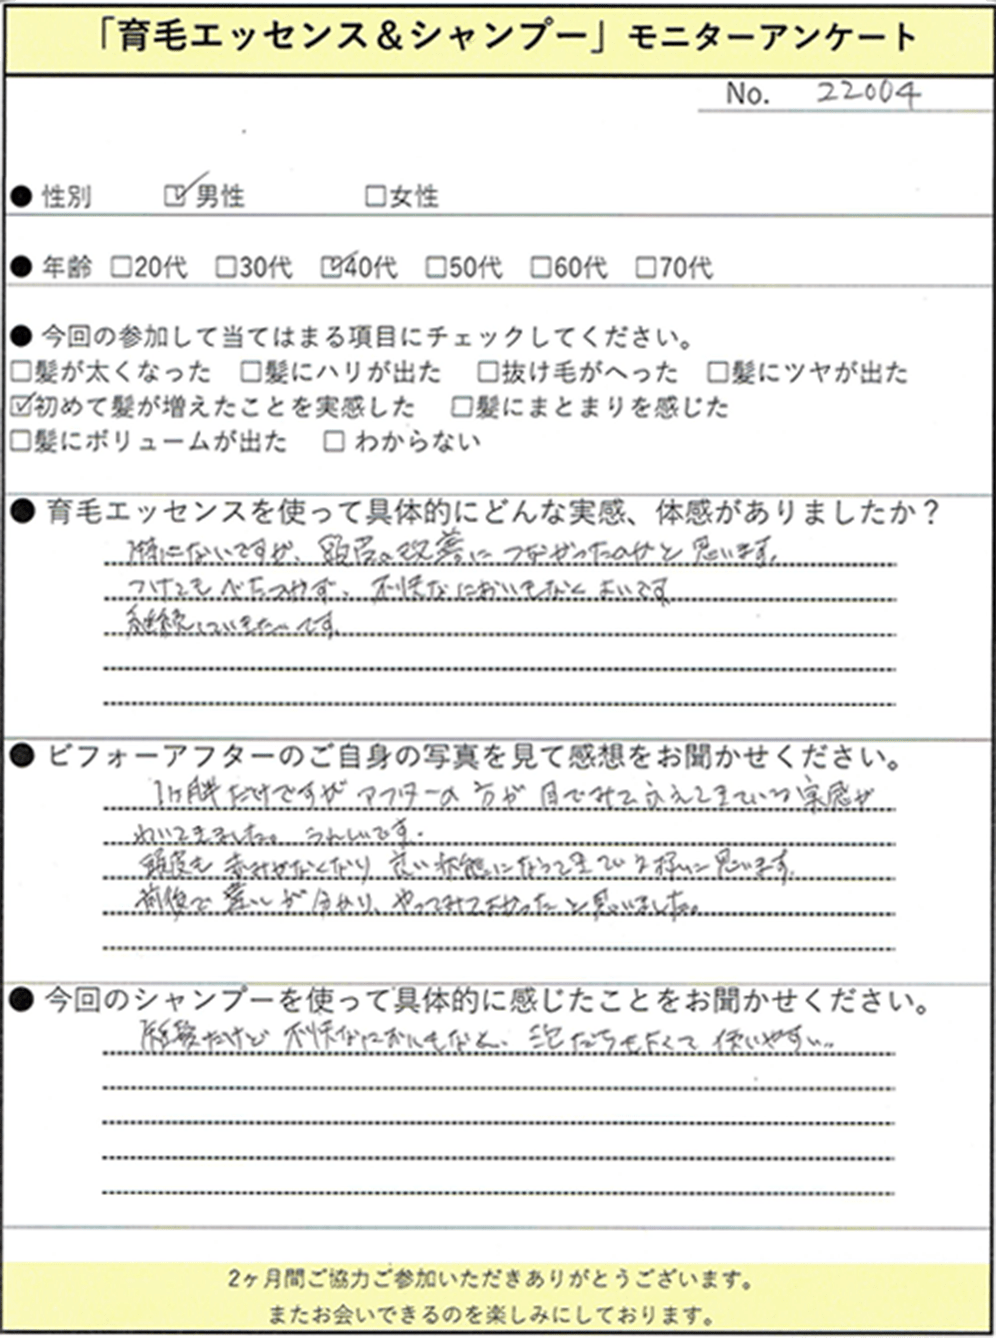 「育毛エッセンス＆シャンプー」モニターアンケート
No. 22004
● 性別 ☑男性 □女性
● 年齢 □20代 □30代 ☑40代 □50代 □60代 □70代
● 今回の参加して当てはまる項目にチェックしてください。
□髪が太くなった □髪にハリが出た □抜け毛がへった □髪にツヤが出た
☑初めて髪が増えたことを実感した □髪にまとまりを感じた
□髪にボリュームが出た □ わからない
● 育毛エッセンスを使って具体的にどんな実感、体感がありましたか？
特にないですが、頭皮の改善につながったのかと思います。
つけてもべたつかず、不快なにおいもなくよいです
継続していきたいです。
● ビフォーアフターのご自身の写真を見て感想をお聞かせください。
1ヶ月半だけですがアフターの方が目でみてふえてきている実感が
わいてきました。うれしいです。
頭皮も赤みがなくなり良い状態になってきている様に思います。
前後で違いが分かり、やってみてよかったと思いました。
● 今回のシャンプーを使って具体的に感じたことをお聞かせください。
だけど不快なにおいもなく、泡だちもよくて使いやすい。
2ヶ月間ご協力ご参加いただきありがとうございます。
またお会いできるのを楽しみにしております。